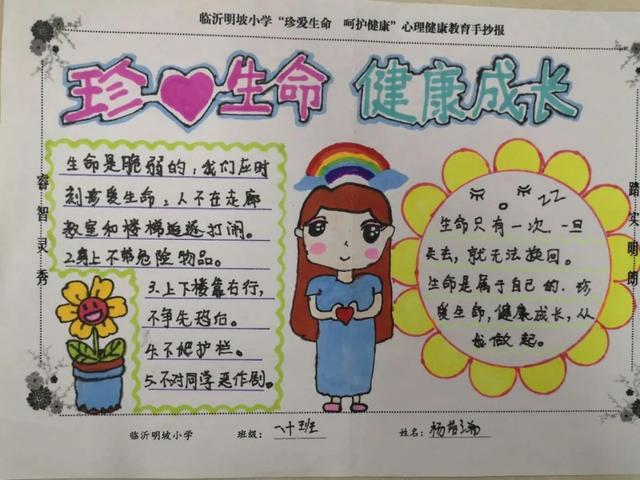 临沂明坡小学“珍爱生命 呵护健康”心理健康教育手抄报
珍♥生命 健康成长
睿智灵秀
生命是脆弱的,我们应时
刻珍爱生命:1.人不在走廊
教室和楼梯追逐打闹。
2.身上不带危险物品。
3.上下楼靠右行,
不争先恐后。
4.不爬护栏。
5.不对同学恶作剧。
zz
生命只有一次.一旦
失去,就无法换回。
生命是属于自己的.珍
爱生命,健康成长,从
做起。
踏实明朗
临沂明坡小学 班级: 班 姓名: 杨